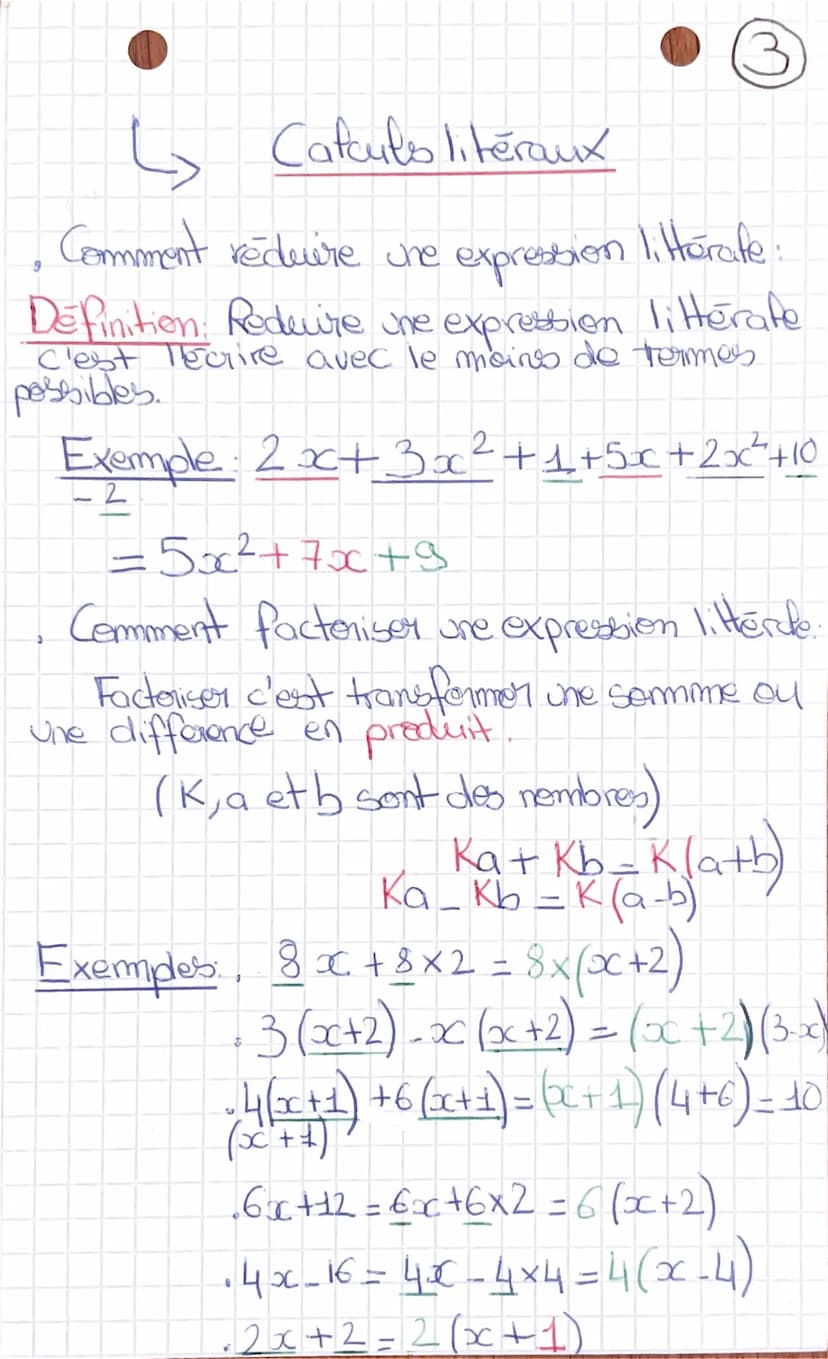 3
↳ Calculs litéraux
. Comment réduire une expression littérale :
Définition: Reduire une expression littérale
c'est l'écrire avec le moins de termes
possibles.
Exemple : 2x + 3x² + 1 + 5x + 2x² + 10
- 2
= 5x² + 7x + 9
. Comment factoriser une expression littérale.
Factoriser c'est transformer une somme ou
une difference en produit.
(K, a et b sont des nombres)
Ka + Kb = K(a+b)
Ka - Kb = K(a-b)
Exemples: . 8x + 8×2 = 8×(x+2)
. 3(x+2) - x(x+2) = (x+2)(3-x)
. 4(x+1) + 6(x+1) = (x+1)(4+6) = 10
(x+1)
. 6x+12 = 6x+6×2 = 6(x+2)
. 4x-16 = 4x - 4×4 = 4(x-4)
. 2x+2 = 2(x+1)